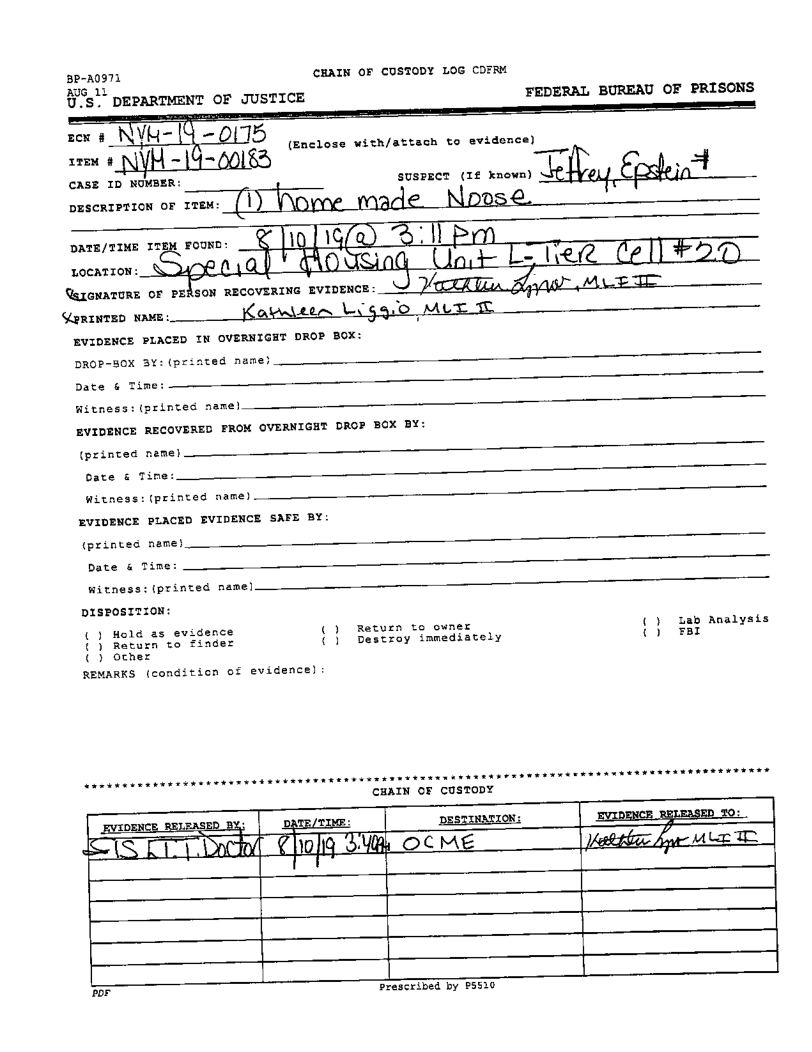 BP-A0971 CHAIN OF CUSTODY LOG CDFRM
AUG 11
U.S. DEPARTMENT OF JUSTICE FEDERAL BUREAU OF PRISONS
ECN # NYM-19-0175 (Enclose with/attach to evidence)
ITEM # NYM-19-00183
CASE ID NUMBER: SUSPECT (If known) Jeffrey, Epstein #
DESCRIPTION OF ITEM: (1) home made Noose
DATE/TIME ITEM FOUND: 8/10/19 @ 3:11 PM
LOCATION: Special Housing Unit L-Tier Cell #220
SIGNATURE OF PERSON RECOVERING EVIDENCE: Kathleen Liggio, MLI II
PRINTED NAME: Kathleen Liggio, MLI II
EVIDENCE PLACED IN OVERNIGHT DROP BOX:
DROP-BOX BY:(printed name)
Date & Time:
Witness:(printed name)
EVIDENCE RECOVERED FROM OVERNIGHT DROP BOX BY:
(printed name)
Date & Time:
Witness:(printed name)
EVIDENCE PLACED EVIDENCE SAFE BY:
(printed name)
Date & Time:
Witness:(printed name)
DISPOSITION:
( ) Hold as evidence ( ) Return to owner ( ) Lab Analysis
( ) Return to finder ( ) Destroy immediately ( ) FBI
( ) Other
REMARKS (condition of evidence):
CHAIN OF CUSTODY
EVIDENCE RELEASED BY: DATE/TIME: DESTINATION: EVIDENCE RELEASED TO:
SIS Doctor 8/10/19 OCME MLI II
PDF Prescribed by P5510